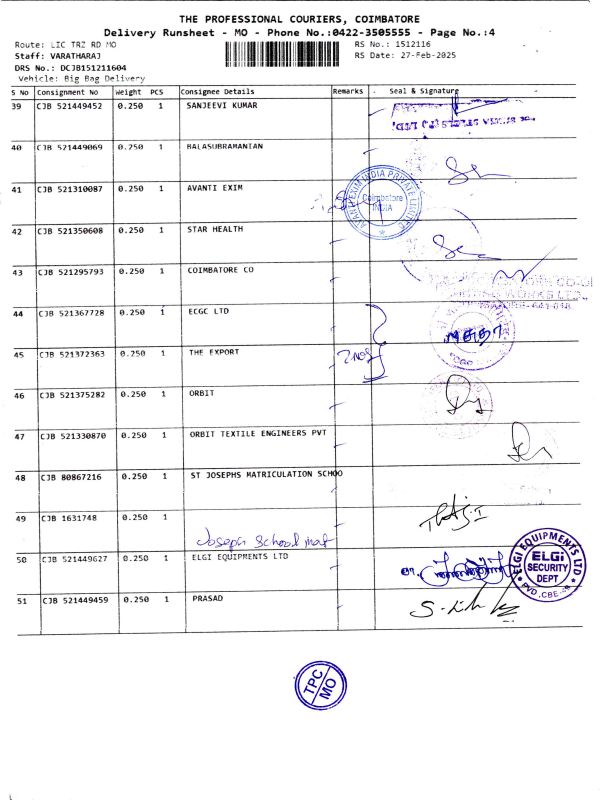 THE PROFESSIONAL COURIERS, COIMBATORE
Delivery Runsheet - MO - Phone No.:0422-3505555 - Page No.:4
Route: LIC TRZ RD MO RS No.: 1512116
Staff: VARATHARAJ RS Date: 27-Feb-2025
DRS No.: DCJB151211604
Vehicle: Big Bag Delivery
S No Consignment No Weight PCS Consignee Details Remarks Seal & Signature
39 CJB 521449452 0.250 1 SANJEEVI KUMAR
40 CJB 521449069 0.250 1 BALASUBRAMANIAN
41 CJB 521310087 0.250 1 AVANTI EXIM
Coimbatore
INDIA
42 CJB 521350608 0.250 1 STAR HEALTH
43 CJB 521295793 0.250 1 COIMBATORE CO
44 CJB 521367728 0.250 1 ECGC LTD
45 CJB 521372363 0.250 1 THE EXPORT
46 CJB 521375282 0.250 1 ORBIT
47 CJB 521330870 0.250 1 ORBIT TEXTILE ENGINEERS PVT
48 CJB 80867216 0.250 1 ST JOSEPHS MATRICULATION SCHOO
49 CJB 1631748 0.250 1
Joseph School mat
50 CJB 521449627 0.250 1 ELGI EQUIPMENTS LTD
ELGI EQUIPMENTS LTD
ELGi
SECURITY
DEPT
51 CJB 521449459 0.250 1 PRASAD
TPC
MO